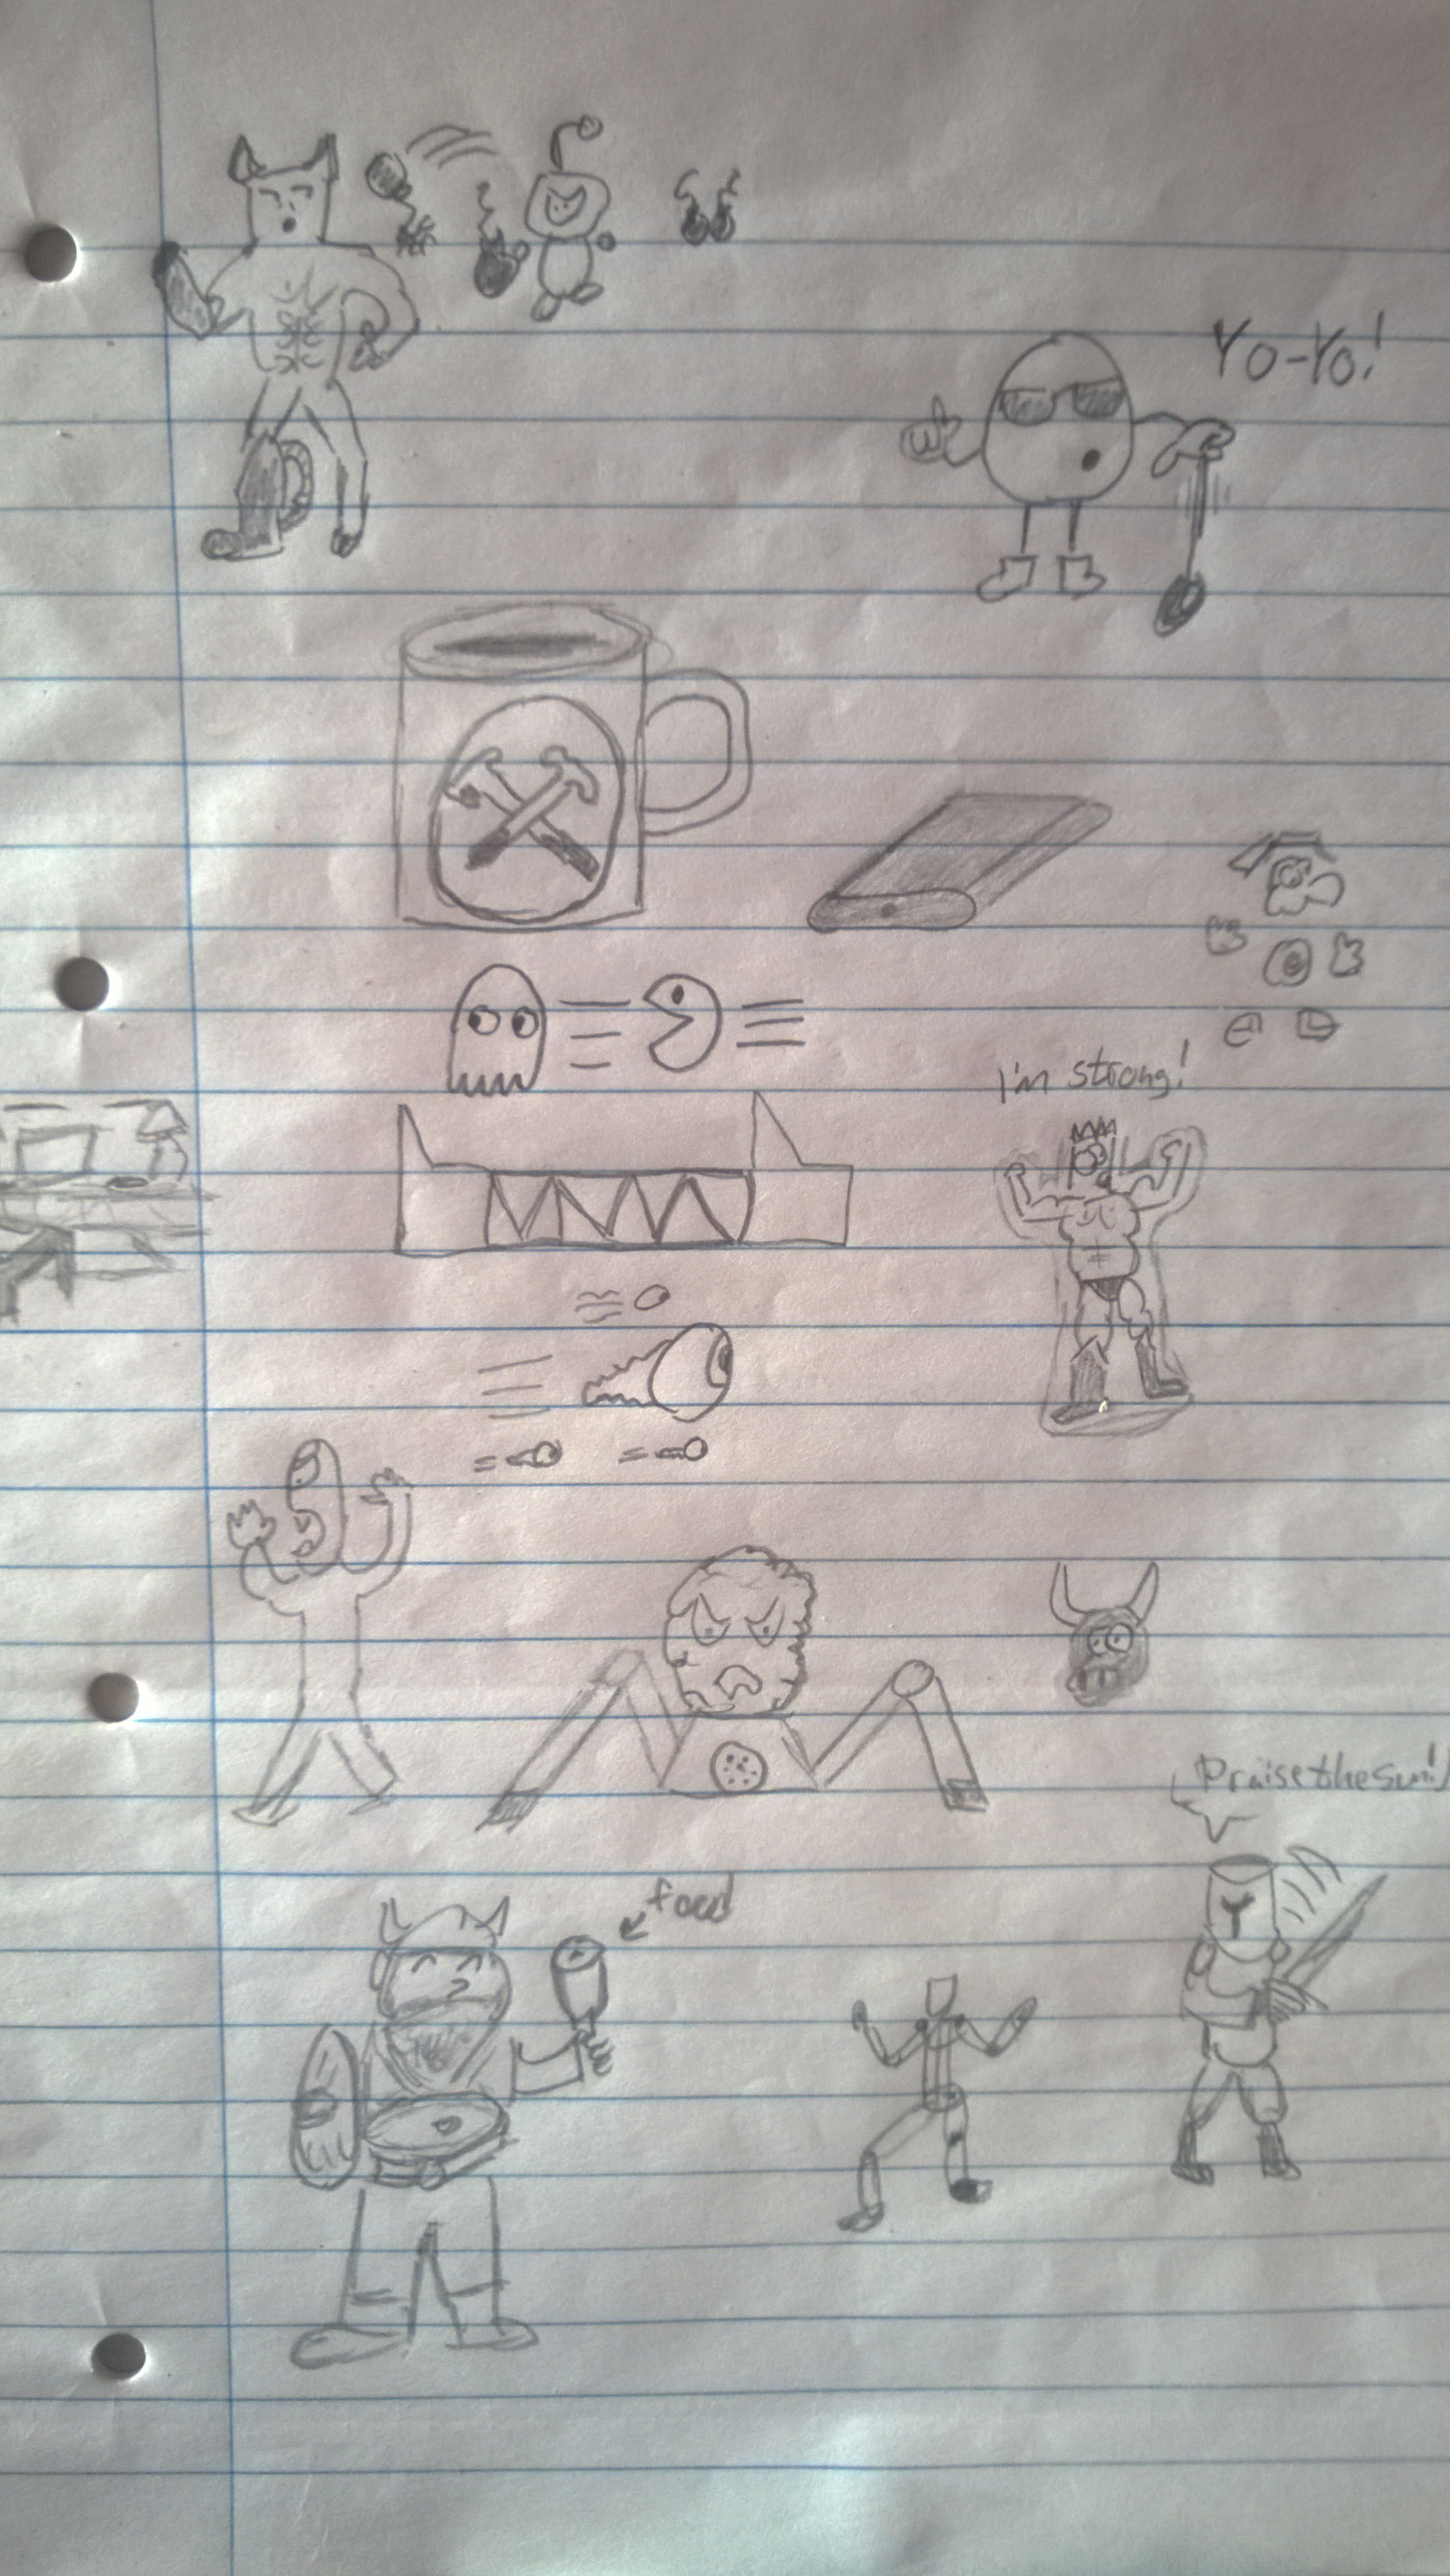 Yo-Yo!
I'm strong!
Praise the Sun!
food